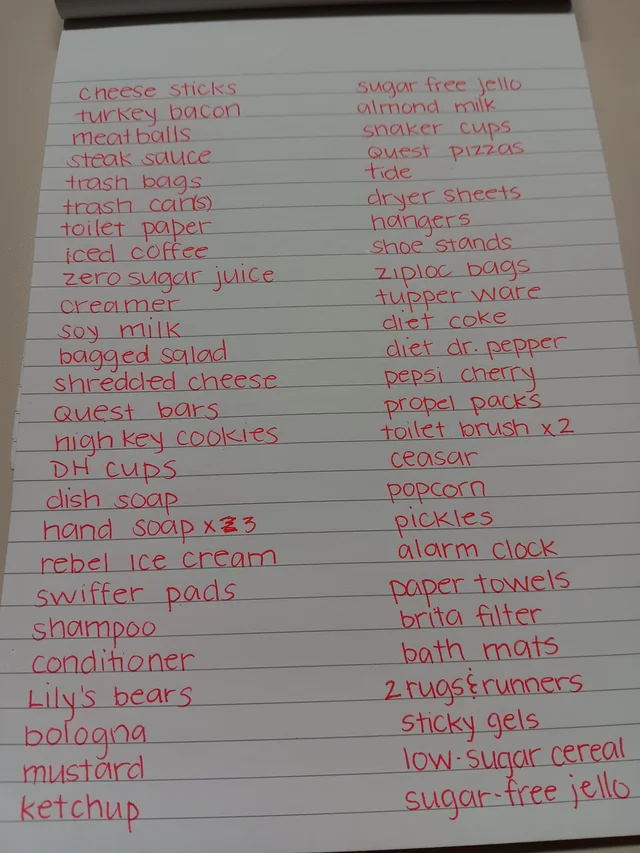 cheese sticks
turkey bacon
meatballs
steak sauce
trash bags
trash can(s)
toilet paper
iced coffee
zero sugar juice
creamer
soy milk
bagged salad
shredded cheese
Quest bars
high key cookies
DH cups
dish soap
hand soap x 3
rebel ice cream
swiffer pads
shampoo
conditioner
Lily's bears
bologna
mustard
ketchup
sugar free jello
almond milk
shaker cups
Quest pizzas
tide
dryer sheets
hangers
shoe stands
ziploc bags
tupper ware
diet coke
diet dr. pepper
pepsi cherry
propel packs
toilet brush x2
ceasar
popcorn
pickles
alarm clock
paper towels
brita filter
bath mats
2 rugs & runners
sticky gels
low-sugar cereal
sugar-free jello